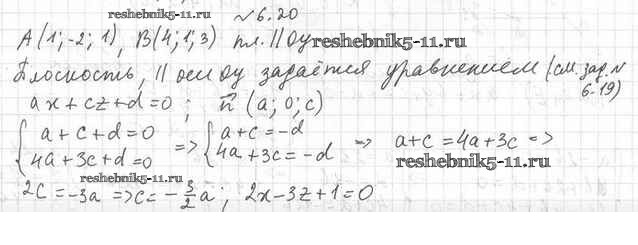 reshebnik5-11.ru №6.20
A(1;-2;1), B(4;1;3) пл. || Oy reshebnik5-11.ru
Плоскость, || оси Oy задаётся уравнением (см. зад. №6.19)
ax+cz+d=0; n⃗ (a;0;c)
{a+c+d=0 4a+3c+d=0 => {a+c=-d 4a+3c=-d => a+c=4a+3c =>
reshebnik5-11.ru reshebnik5-11.ru
2c=-3a => c=-3/2a; 2x-3z+1=0